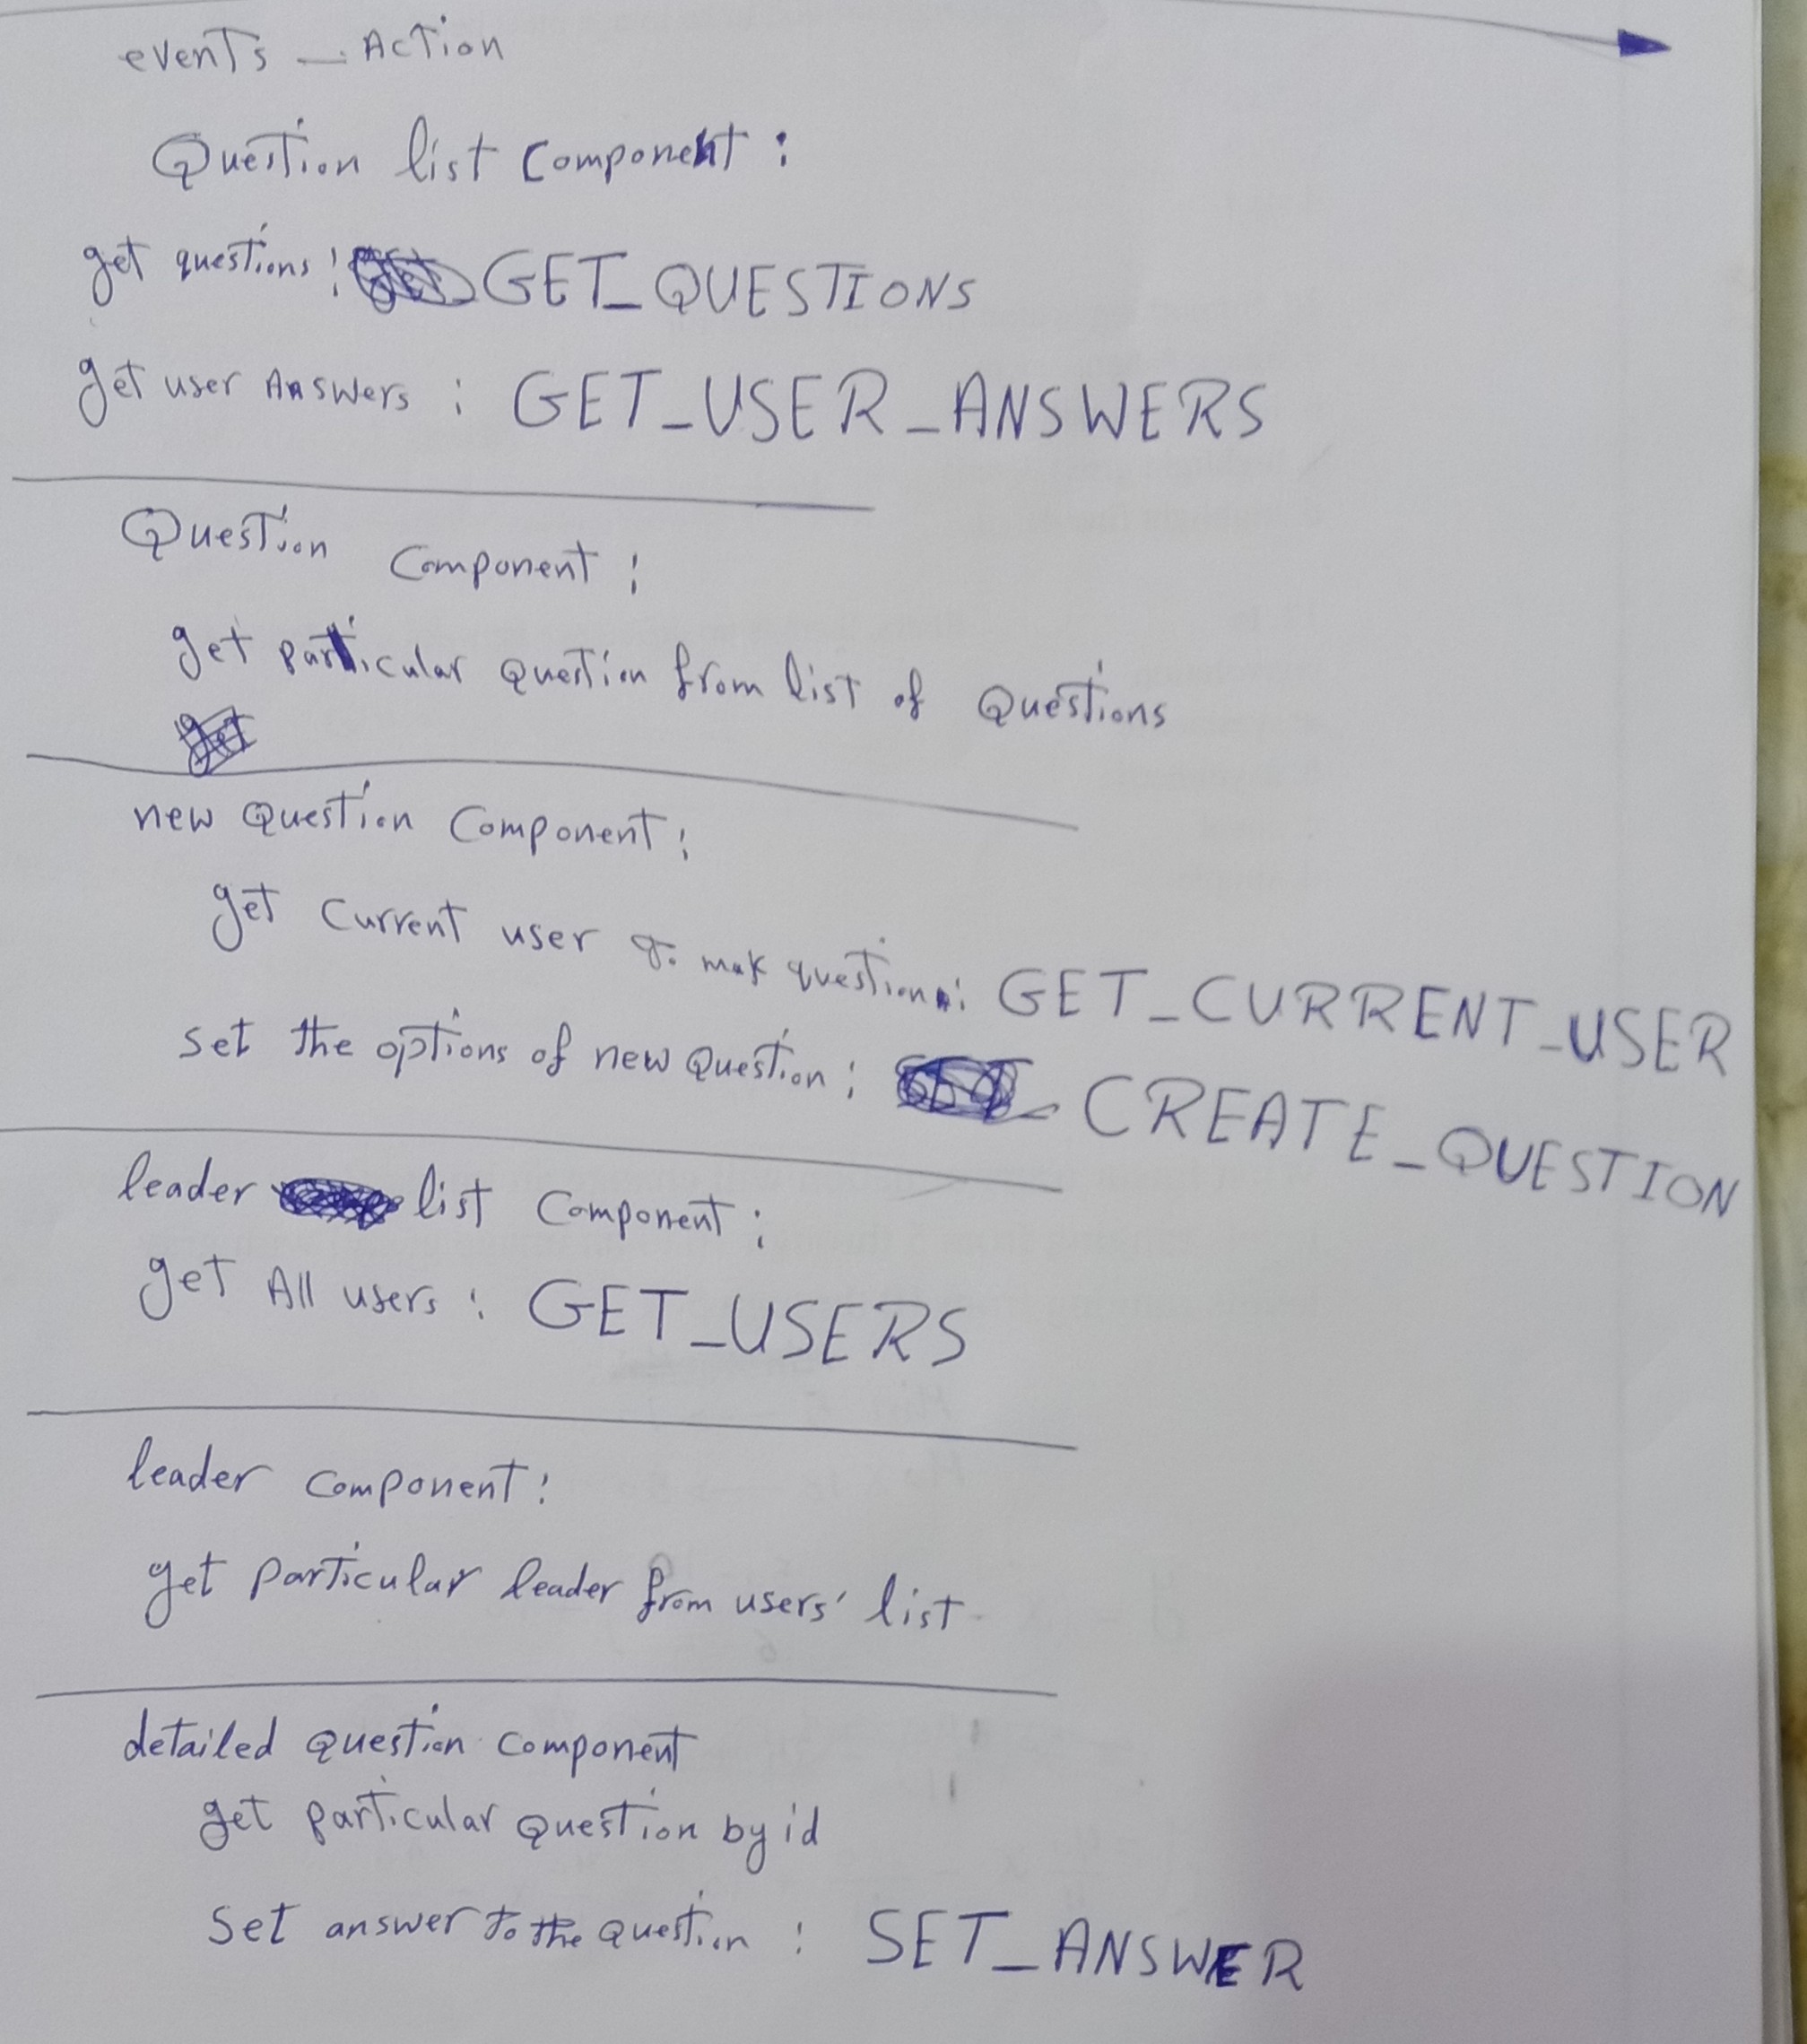 events - Action
Question list Component :
get questions : GET_QUESTIONS
get user Answers : GET_USER_ANSWERS
Question Component :
get particular question from list of Questions
new Question Component :
get Current user to mak question : GET_CURRENT_USER
set the options of new Question : CREATE_QUESTION
leader list Component :
get All users : GET_USERS
leader component :
get particular leader from users' list
detailed question component
get particular question by id
Set answer to the question : SET_ANSWER